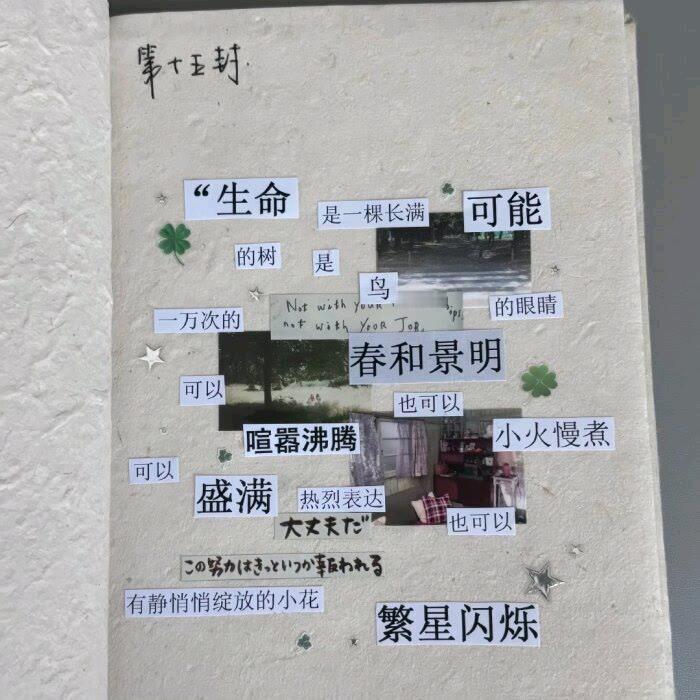 第十五封
“生命 是一棵长满 可能
的树 是 鸟 的眼睛
Not with YOUR
not with YOUR JOB.
一万次的 春和景明
可以 喧嚣沸腾 也可以 小火慢煮
可以 盛满 热烈表达 也可以
大丈夫だ
この努力はきっといつか報われる
有静悄悄绽放的小花 繁星闪烁